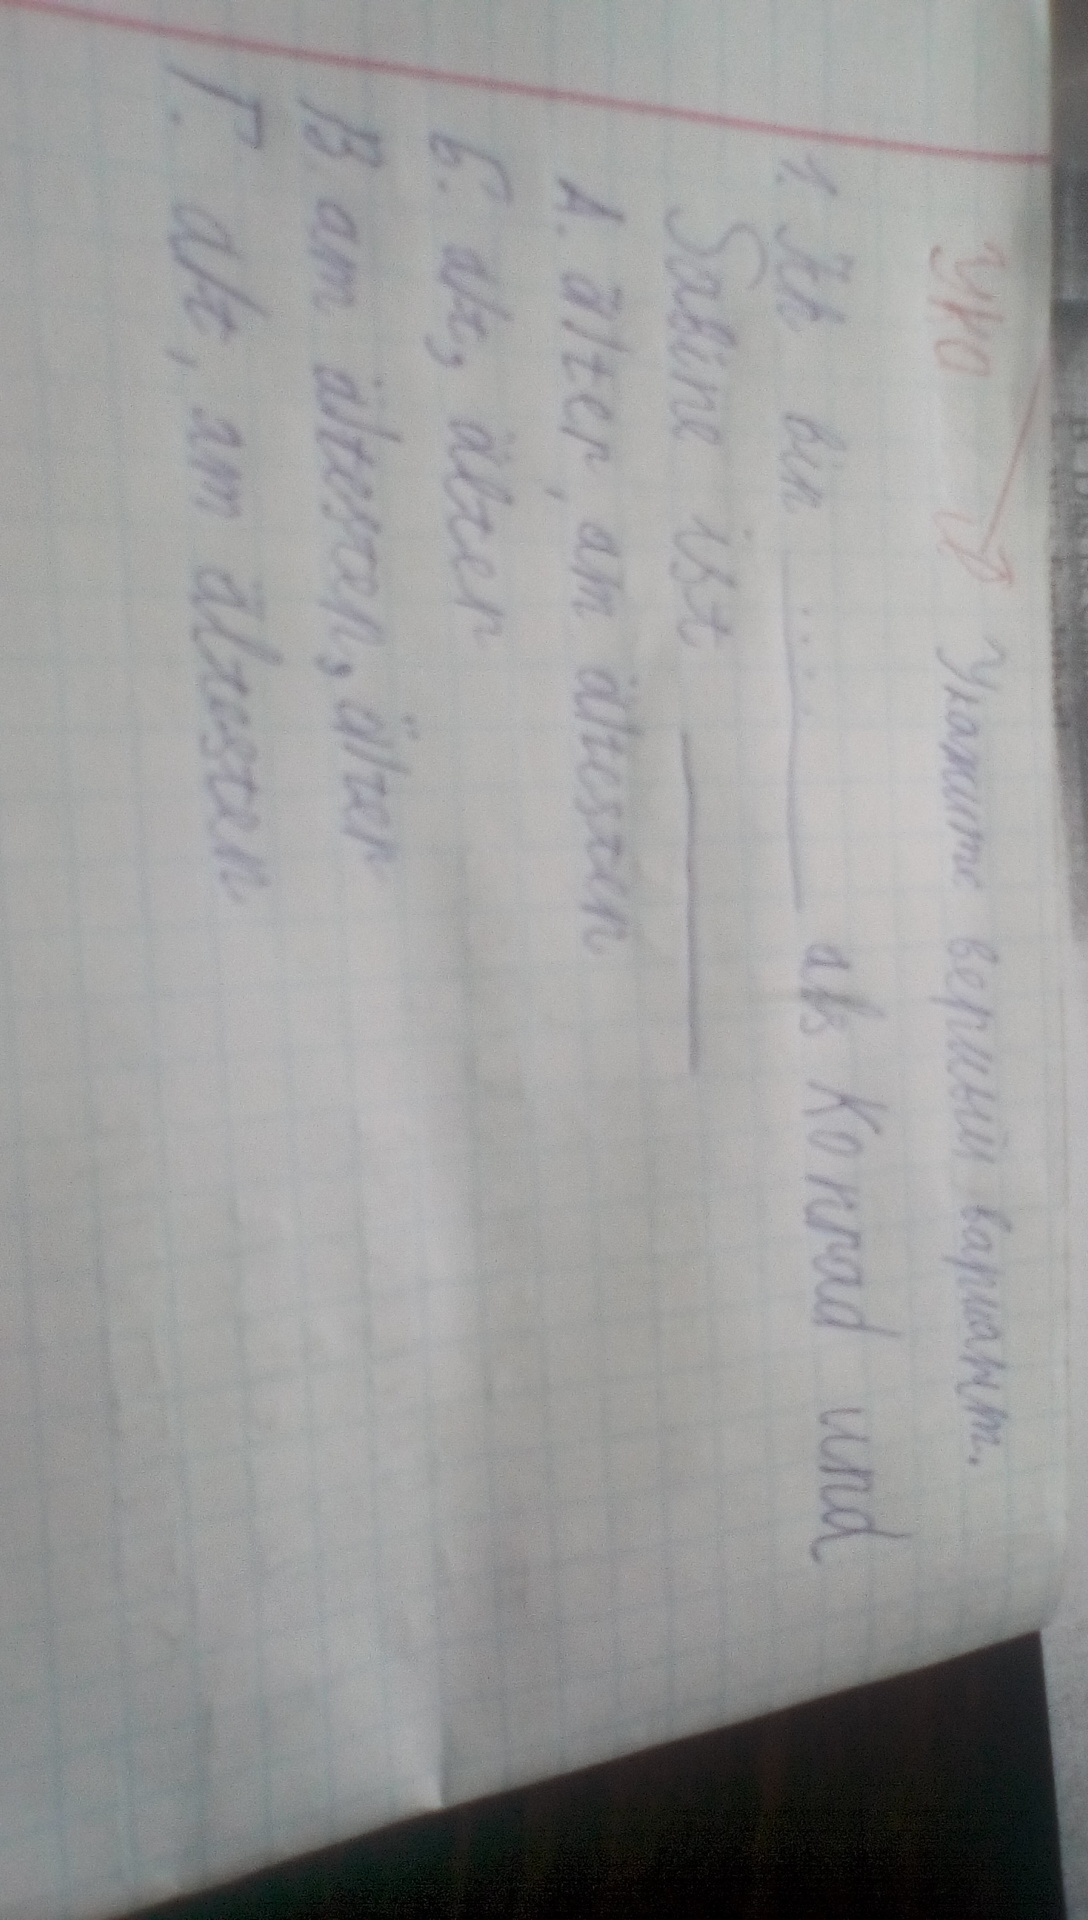 Укажите верный вариант.
1. Ich bin ........ als Konrad und
Sabine ist ________
А. älter, am ältesten
Б. alt, älter
В. am ältesten, älter
Г. alt, am ältesten